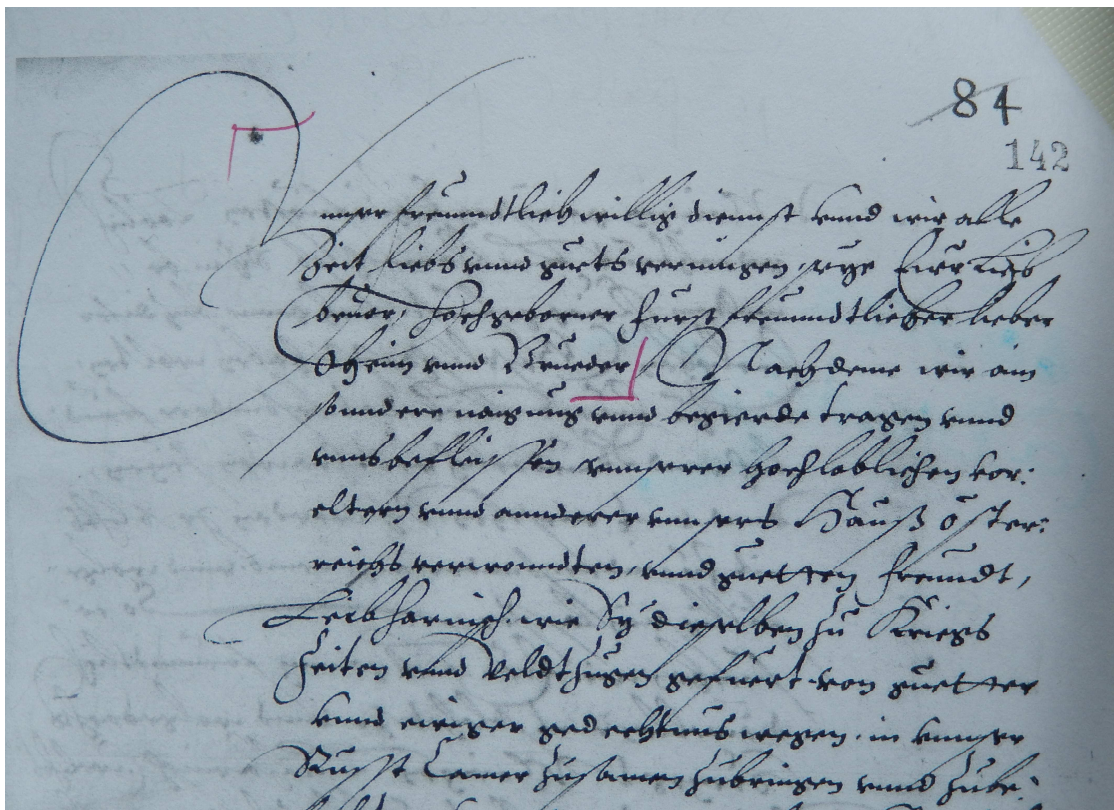 84
142
Unnser freundtlich willig dienst unnd wir alle
Zeit liebs unnd guets vermugen, Eur Lieb
bevor, Hochgeborner Fürst freundtlicher lieber
Oheim unnd Brueder, Nachdeme wir ain
sonndere naigung unnd begierde tragen unnd
unns befleissen unnserer hochloblichen vor:
eltern unnd annderer unnsers Hauß Öster:
reichs verwonndten, unnd guetten freundt,
Leibharnisch, wie Sy dieselben zu Kriegs
Zeiten unnd Veldtzugen gefuert, von guetter
unnd ewiger gedechtnus wegen, in unnser
Russt Camer zusamen zubringen unnd zube: